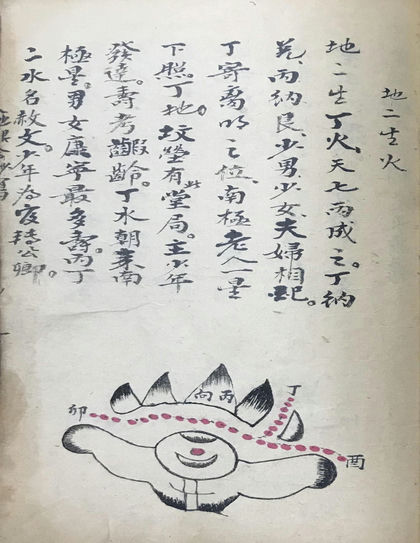 地二生火
地二生丁火、天七丙成之。丁納
兌、丙納艮、少男少女、夫婦相配。
丁寄离明之位、南極老人一星
下照。丁地坟塋有此堂局。主少年
發達。壽考齯齡。丁水朝来南
極星。男女康寧最多壽。丙丁
二水名赦文。少年為官轉公卿。
卯
向丙
丁
酉